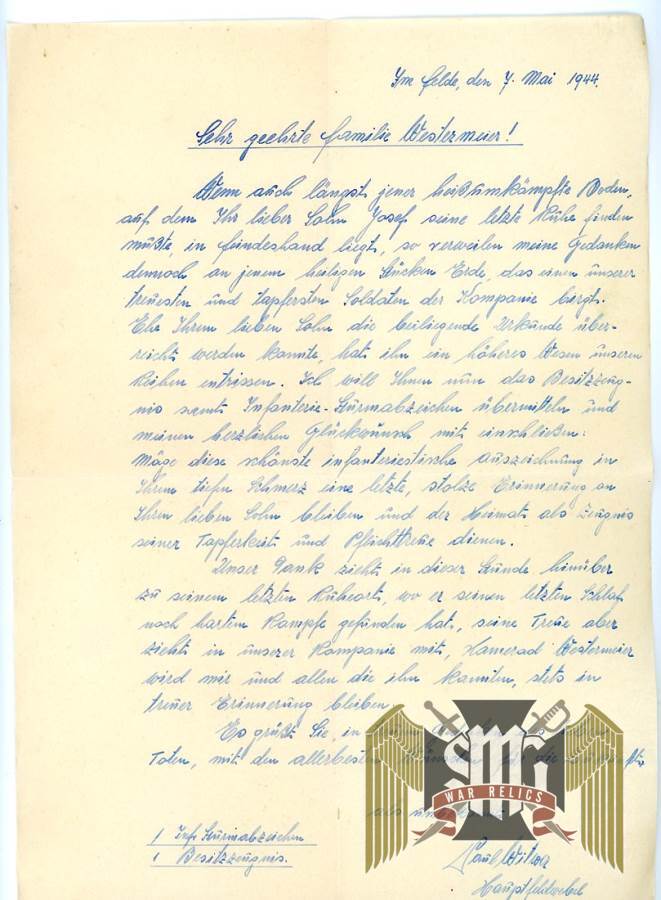 Im Felde, den 7. Mai 1944.
Sehr geehrte Familie Westermeier!
Wenn auch längst jener heißumkämpfte Boden,
auf dem Ihr lieber Sohn Josef seine letzte Ruhe finden
mußte, in Feindeshand liegt, so verweilen meine Gedanken
dennoch an jenem heiligen Stücken Erde, das einen unserer
treuesten und tapfersten Soldaten der Kompanie birgt.
Ehe Ihrem lieben Sohn die beiliegende Urkunde über-
reicht werden konnte, hat ihn ein höheres Wesen unseren
Reihen entrissen. Ich will Ihnen nun das Besitzzeug-
nis samt Infanterie-Sturmabzeichen übermitteln und
meinen herzlichen Glückwunsch mit einschließen:
Möge diese schönste infanteriestische Auszeichnung in
Ihrem tiefen Schmerz eine letzte, stolze Erinnerung an
Ihren lieben Sohn bleiben und der Heimat als Zeugnis
seiner Tapferkeit und Pflichttreue dienen.
Unser Dank zieht in dieser Stunde hinüber
zu seinem letzten Ruheort, wo er seinen letzten Schlaf
nach harten Kampfe gefunden hat, seine Treue aber
zieht in unserer Kompanie mit, Kamerad Westermeier
wird mir und allen die ihn kannten, stets in
treuer Erinnerung bleiben.
Es grüßt Sie, in
Toten, mit den allerbesten Wünschen für die
als
1 Inf. Sturmabzeichen
1 Besitzzeugnis.
Paul
Hauptfeldwebel
WAR RELICS